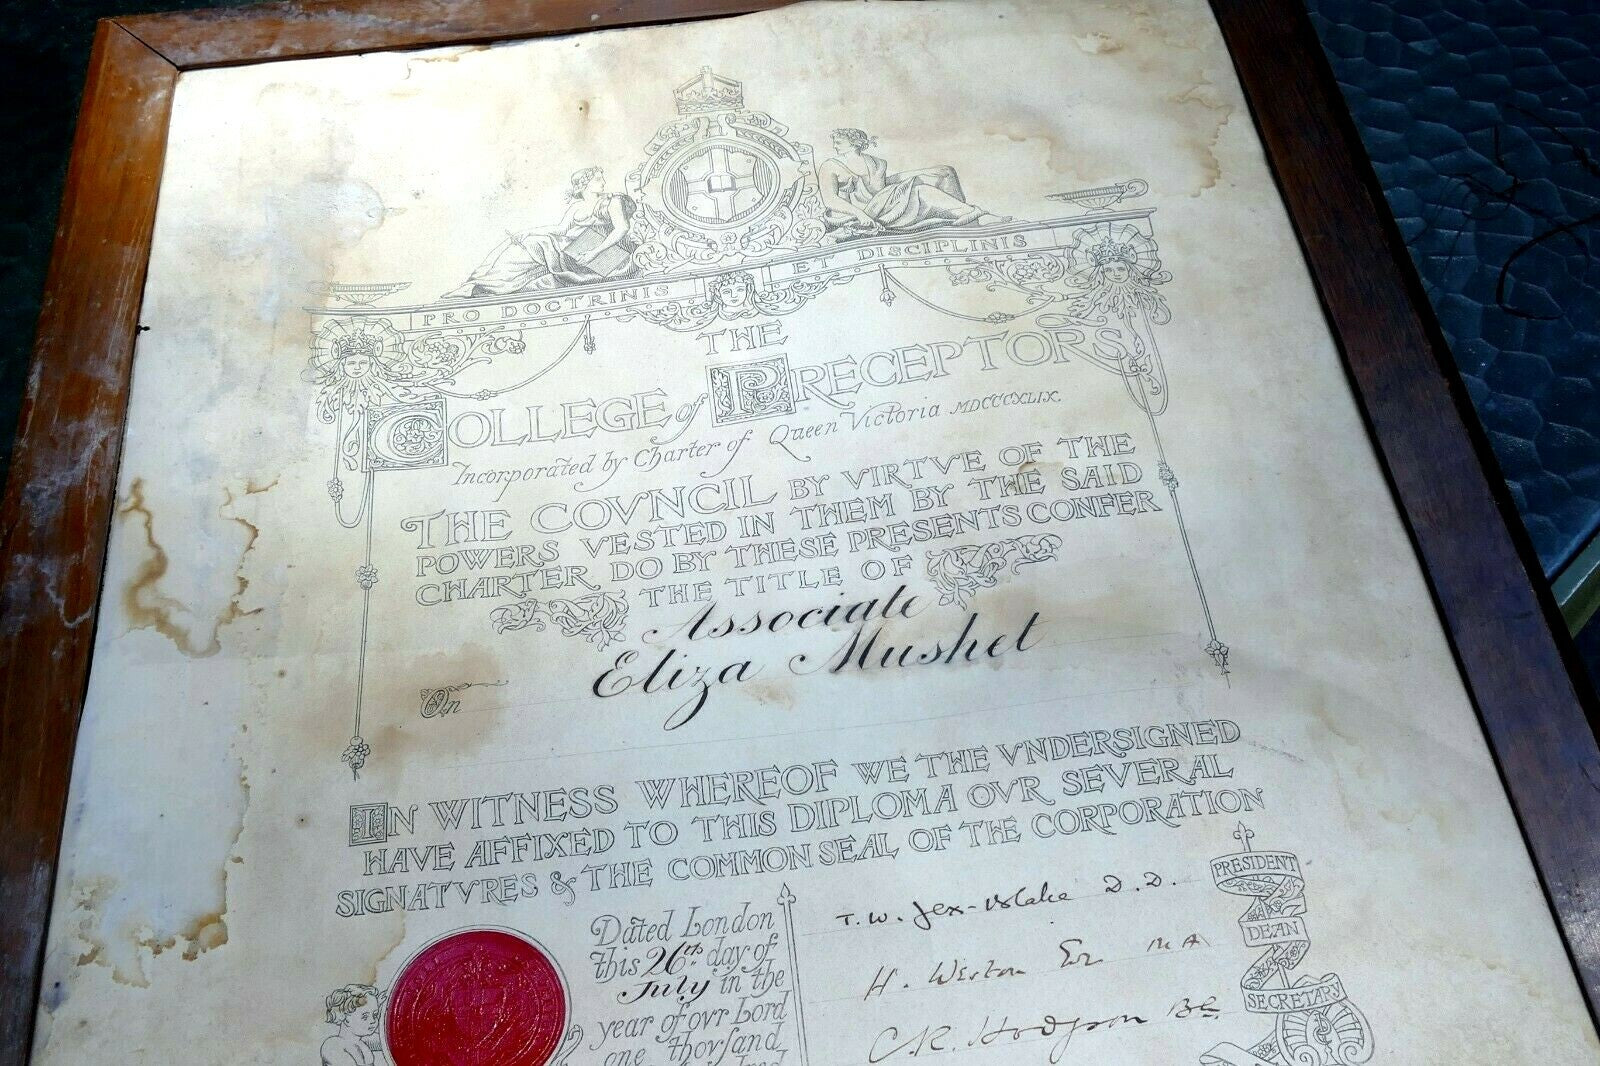 PRO DOCTRINIS ET DISCIPLINIS
THE
COLLEGE of PRECEPTORS
Incorporated by Charter of Queen Victoria MDCCCXLIX.
THE COVNCIL BY VIRTVE OF THE
POWERS VESTED IN THEM BY THE SAID
CHARTER DO BY THESE PRESENTS CONFER
THE TITLE OF
Associate
On Eliza Mushet
IN WITNESS WHEREOF WE THE VNDERSIGNED
HAVE AFFIXED TO THIS DIPLOMA OVR SEVERAL
SIGNATVRES & THE COMMON SEAL OF THE CORPORATION
Dated London
this 26th day of
July in the
year of ovr Lord
one thovsand
T. W. Jex-Blake D.D.
H. Weston Esq M A
C. R. Hodgson BA.
PRESIDENT
DEAN
SECRETARY